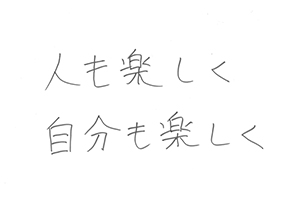 人も楽しく
自分も楽しく